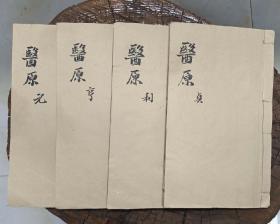 醫原 元
醫原 亨
醫原 利
醫原 貞